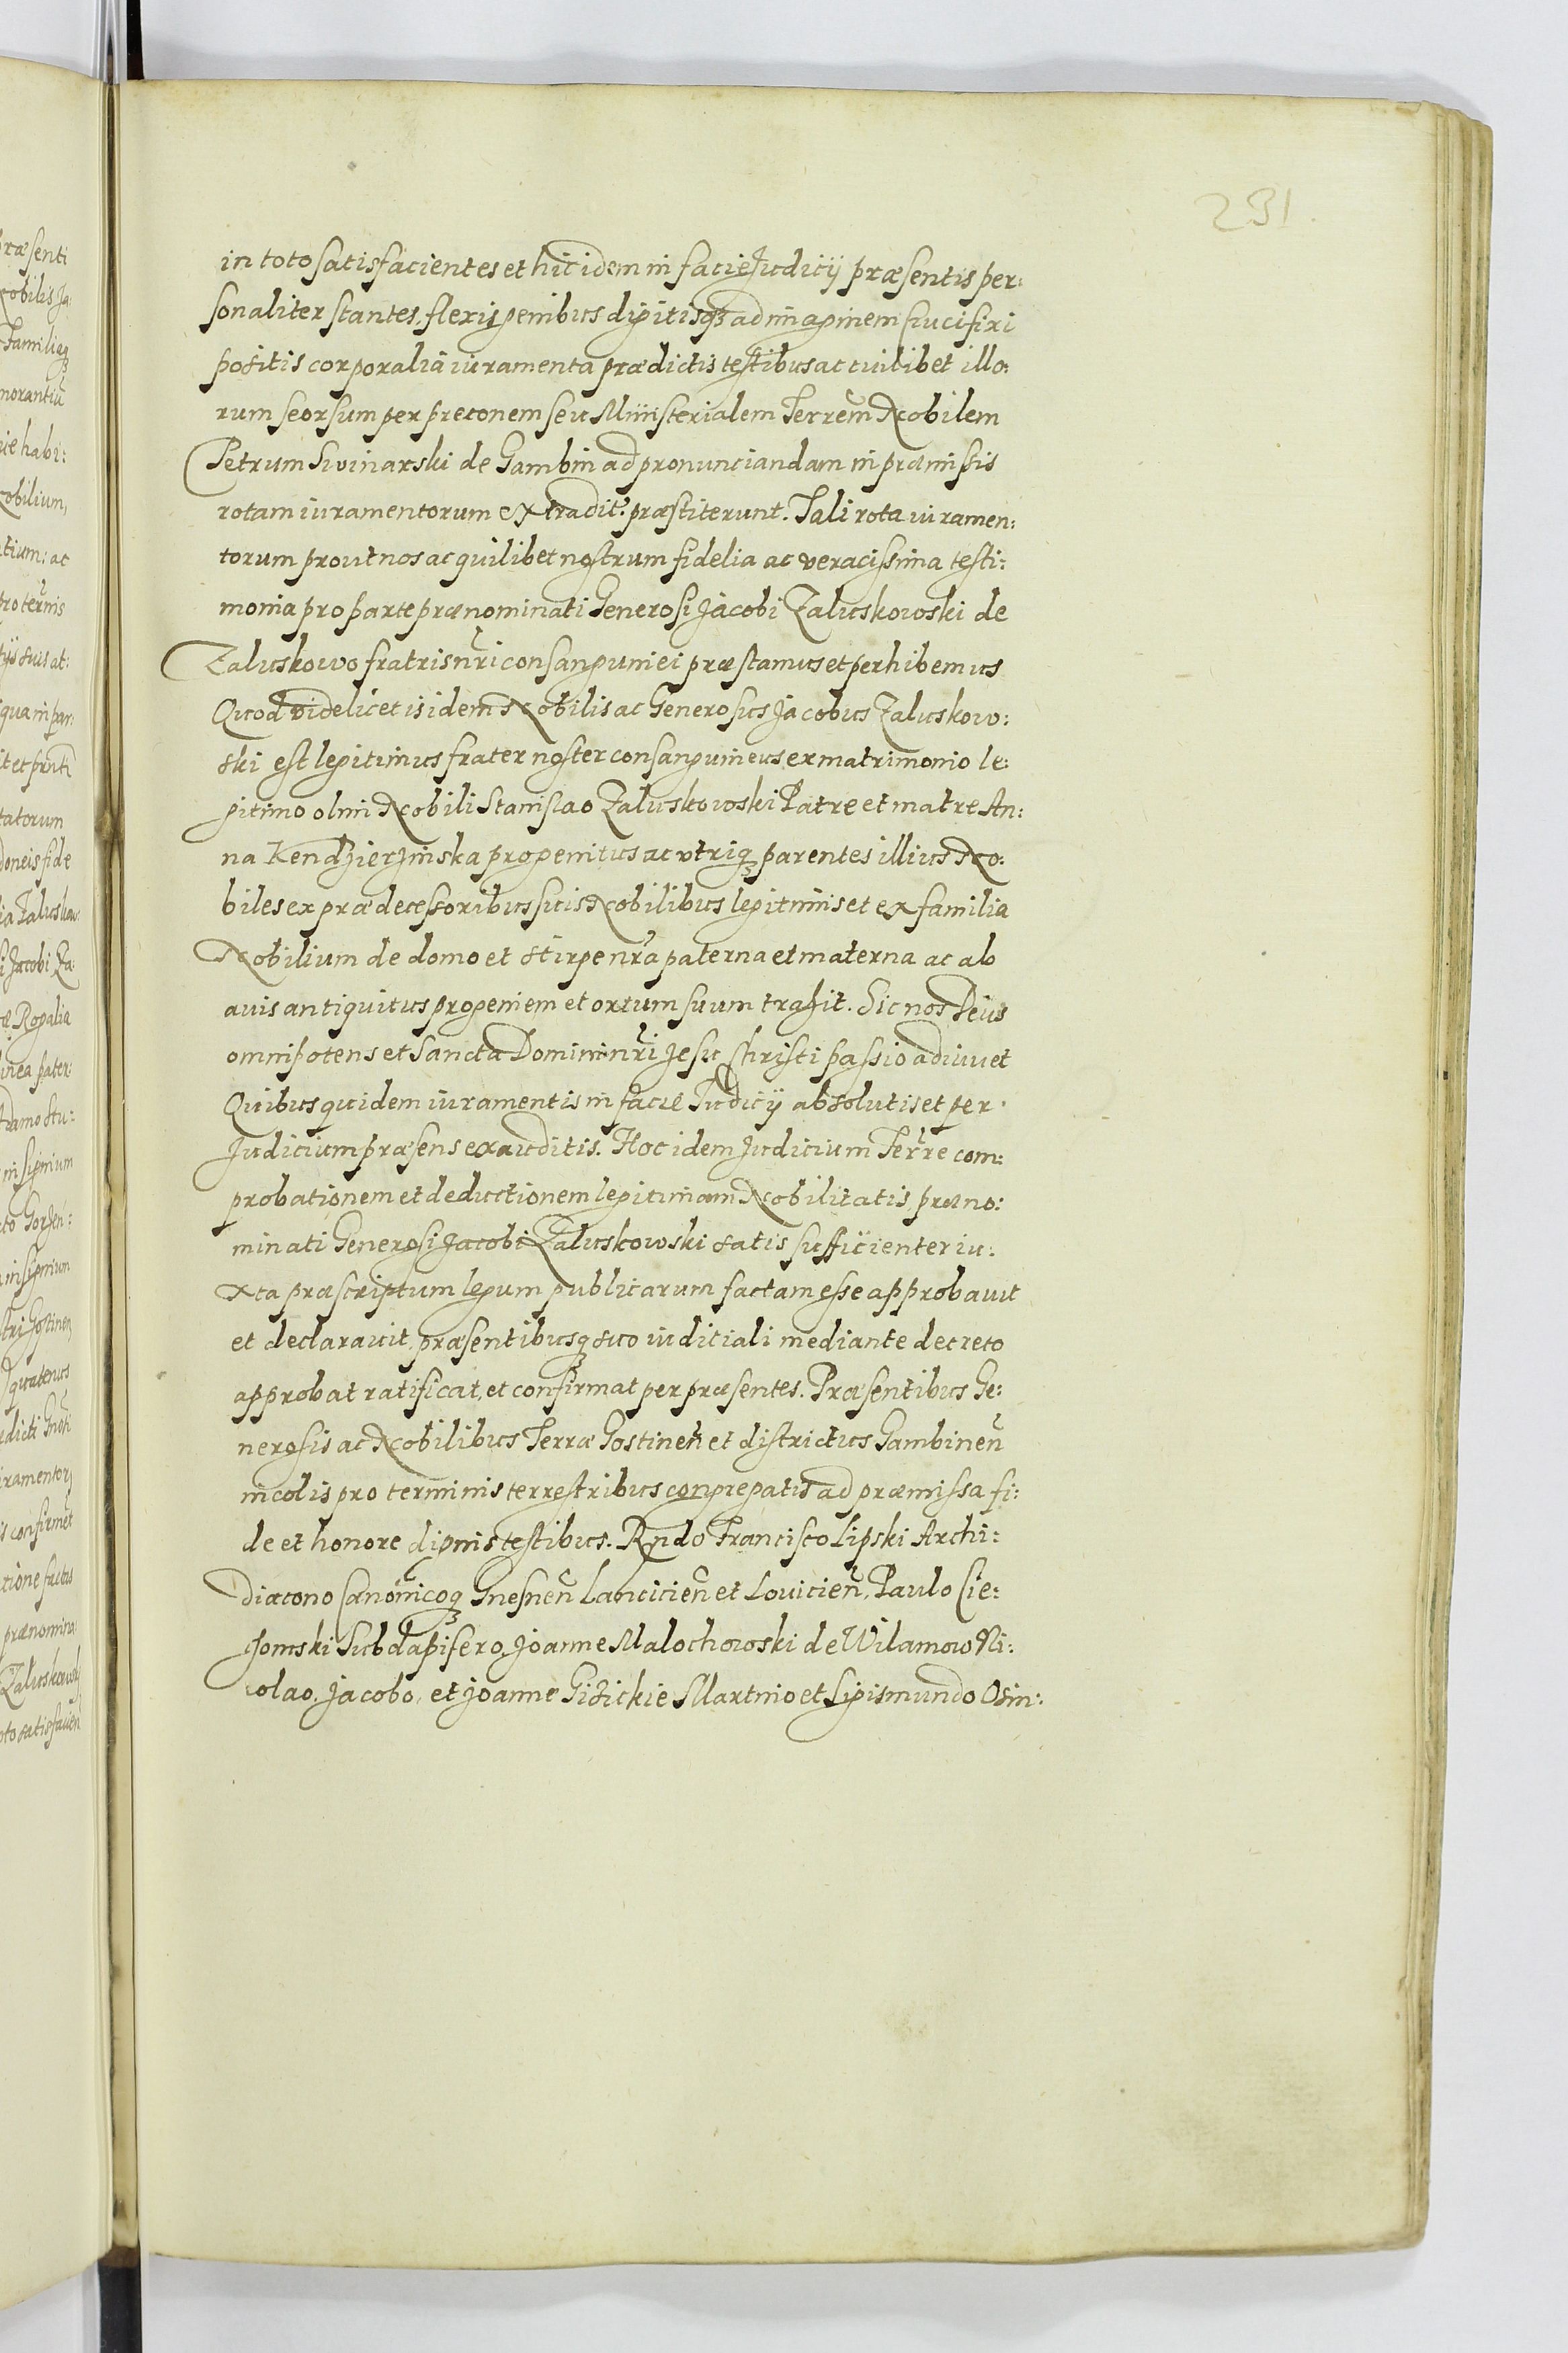 231.
in toto satisfacientes et hic idem in facie Judicÿ præsentis per:
sonaliter stantes, flexis genibus digitisqz ad imaginem Crucifixi
positis corporalia iuramenta prædictis testibus ac cuilibet illo:
rum seorsum per preconem seu Ministerialem Terrem̃ Nobilem
Petrum Swinarski de Gambin ad pronunciandam in præmissis
rotam iuramentorum ex tradit: præstiterunt. Tali rota iuramen:
torum prout nos ac quilibet nostrum fidelia ac veracissima testi:
monia pro parte prænominati Generosi Jacobi Zaluskowski de
Zaluskowo fratris nr̃i consanguinei præstamus et perhibemus
Quod videlicet is idem Nobilis ac Generosus Jacobus Zaluskow:
ski est legitimus frater noster consanguineus ex matrimonio le:
gitimo olim Nobili Stanislao Zaluskowski Patre et matre An:
na Kendzierzinska progenitus ac vtriqz parentes illius No:
biles ex prædecessoribus suis Nobilibus legitimis et ex familia
Nobilium de domo et stirpe nr̃a paterna et materna ac ab
auis antiquitus progeniem et ortum suum trahit. Sic nos Deus
omnipotens et Sancta Domini nr̃i Jesu Christi passio adiuuet
Quibus quidem iuramentis in facie Judicÿ absolutis et per
Judicium præsens exauditis. Hoc idem Judicium Terr̃e com:
probationem et deductionem legitimam Nobilitatis præno:
minati Generosi Jacobi Zaluskowski satis sufficienter iu:
xta præscriptum legum publicarum factam esse approbauit
et declarauit, præsentibusqz suo iuditiali mediante decreto
approbat ratificat, et confirmat per præsentes. Præsentibus Ge:
nerosis ac Nobilibus Terræ Gostineñ et districtus Gambineñ
incolis pro terminis terrestribus congregatis ad præmissa fi:
de et honore dignis testibus. Rndo Francisco Lipski Archi:
Diacono Canonicoqz Gnesneñ Lancicieñ et Louicieñ, Paulo Cie:
Jomski Subdapifero, Joanne Malochowski de Wilamow Ni:
colao, Jacobo, et Joanne Gizickie Martino et Sigismundo Osin: